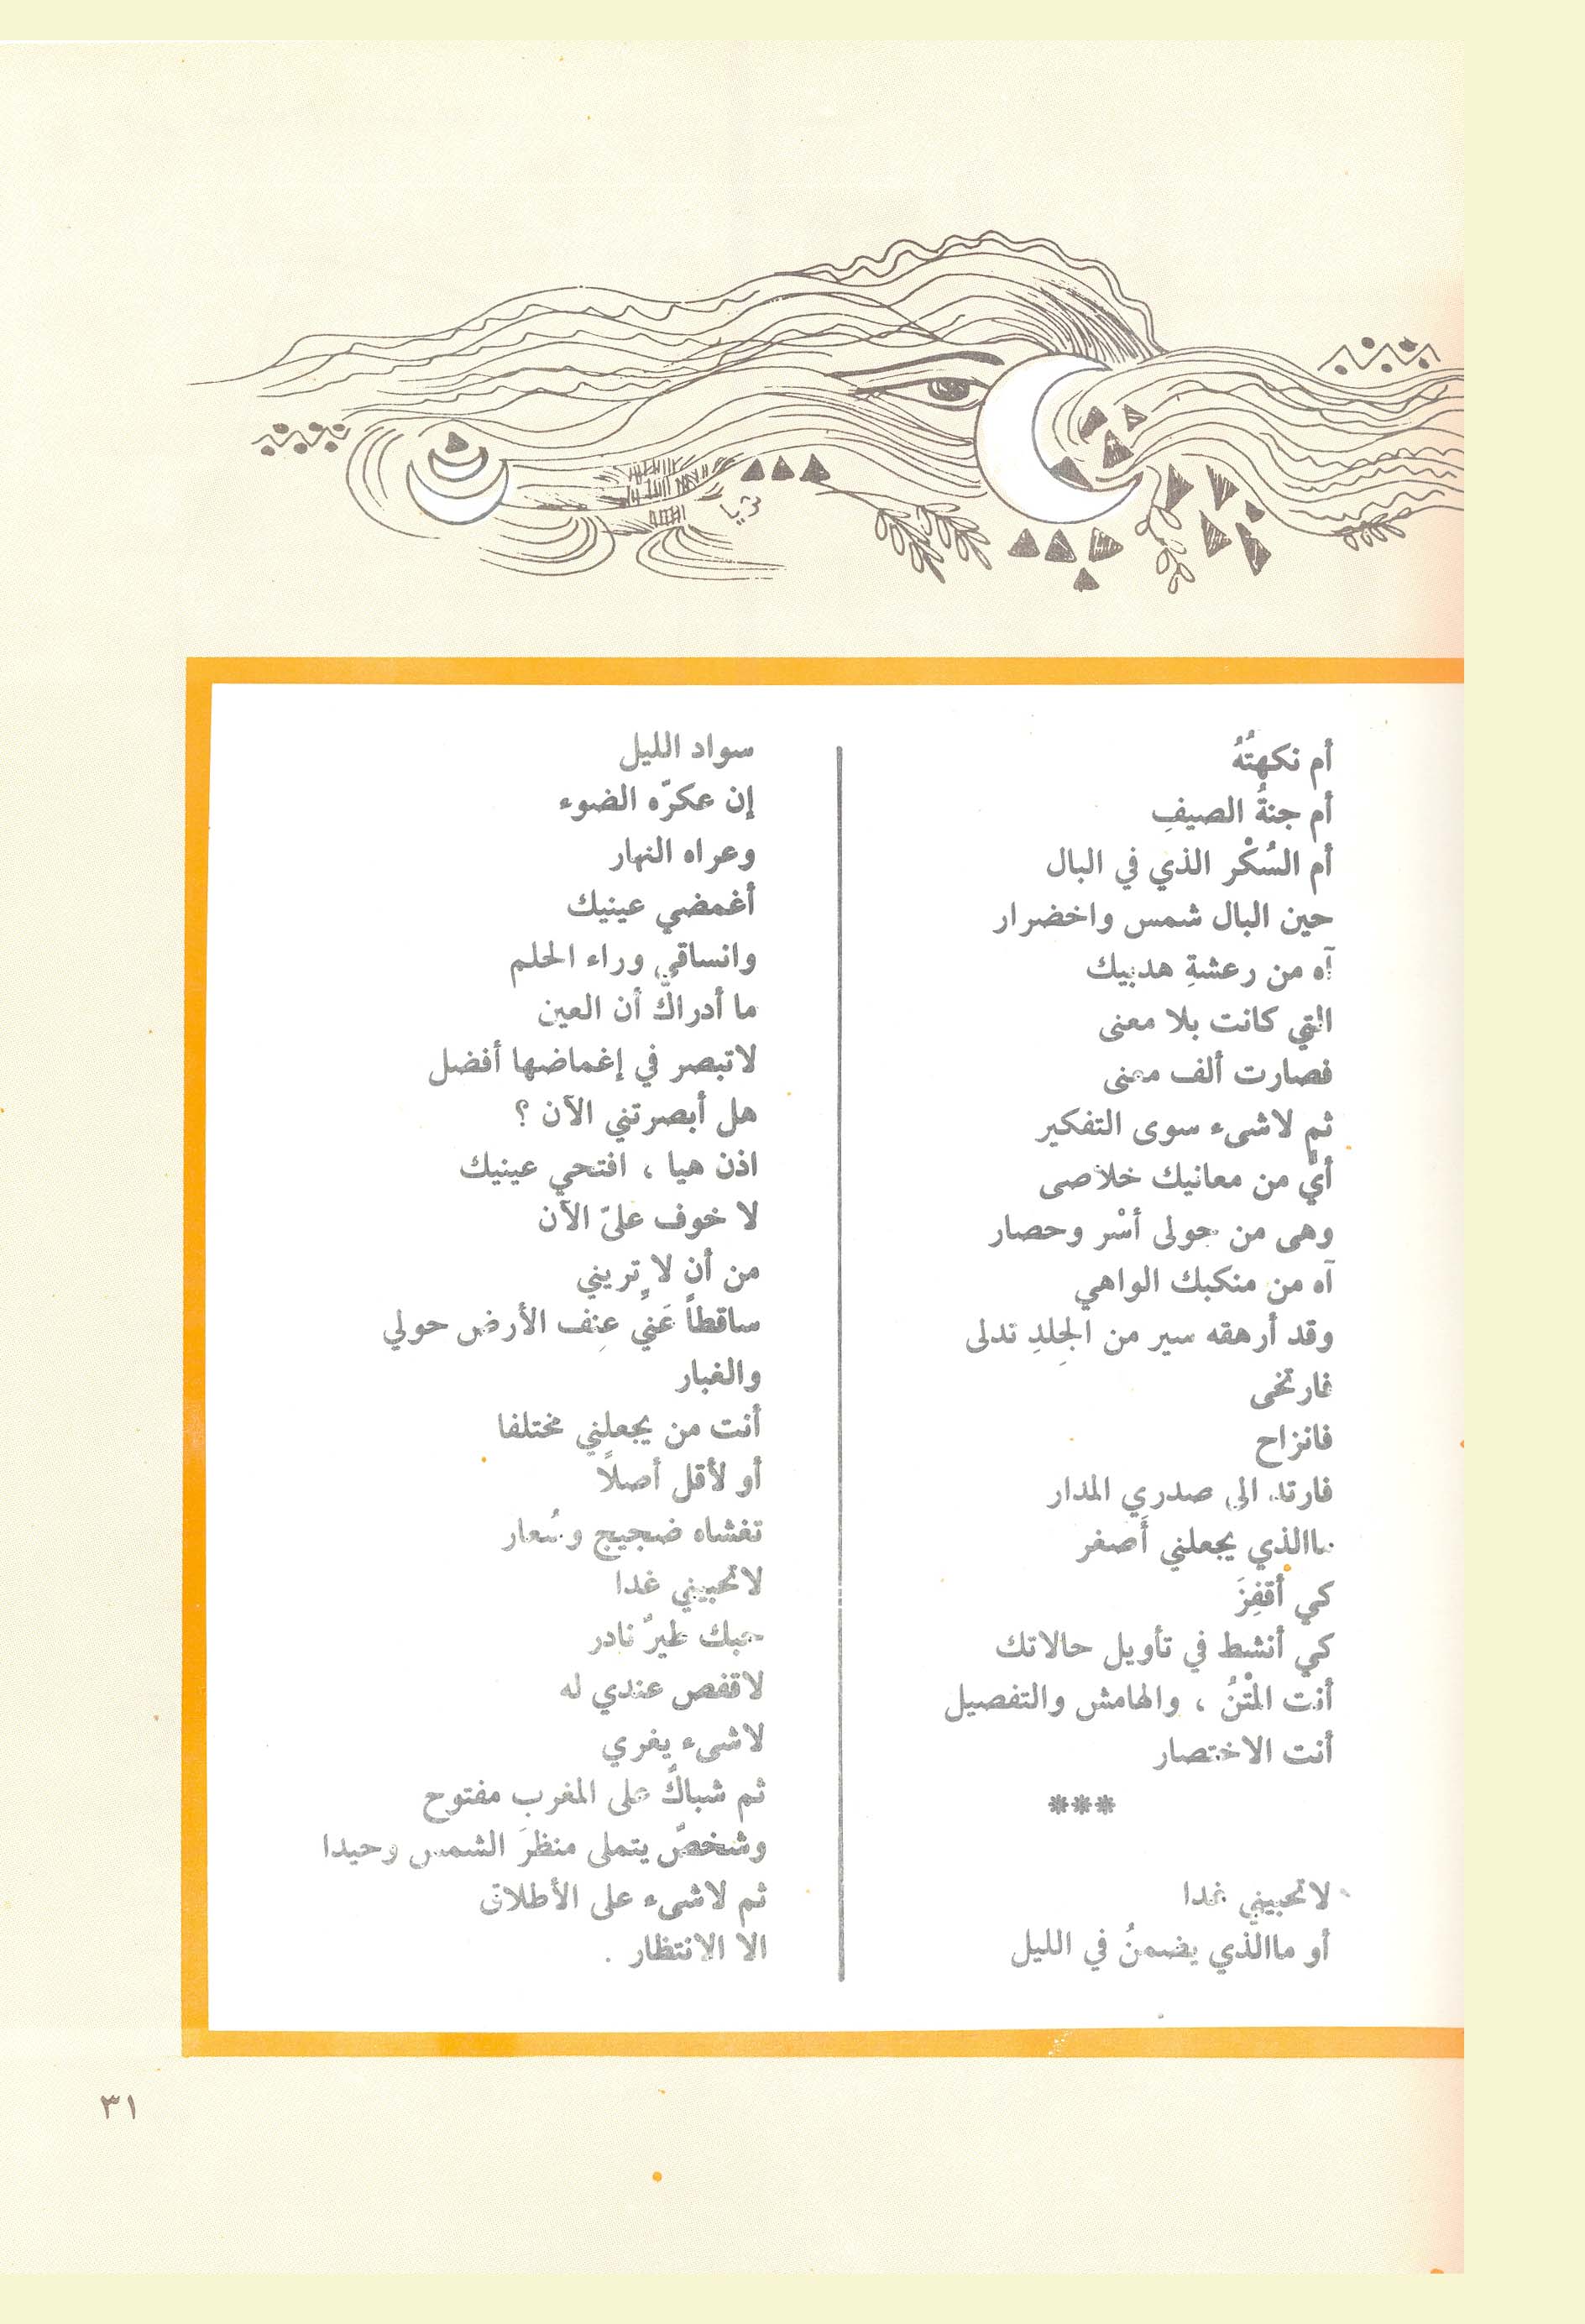 ثريا
أم نكهتُهُ
أم جنةُ الصيفِ
أم السُكْر الذي في البال
حين البال شمس واخضرار
آه من رعشةِ هدبيك
التي كانت بلا معنى
فصارت ألف معنى
ثم لاشىء سوى التفكير
أيٌّ من معانيك خلاصى
وهى من حولى أسْر وحصار
آه من منكبك الواهي
وقد أرهقه سير من الجِلدِ تدلى
فارتخى
فانزاح
فارتد الى صدري المدار
ماالذي يجعلني أَصغر
كي أقفِزَ
كي أنشط في تأويل حالاتك
أنت المْتنُ ، والهامش والتفصيل
أنت الاختصار
***
لاتحبيني غدا
أو ماالذي يضمنُ في الليل
سواد الليل
إن عكرّه الضوء
وعراه النهار
أغمضي عينيك
وانساقي وراء الحلم
ما أدراكِ أن العين
لاتبصر في إغماضها أفضل
هل أبصرتني الآن ؟
اذن هيا ، افتحي عينيك
لا خوف علىّ الآن
من أن لا تريني
ساقطاً عَنيِّ عِنف الأرض حولي
والغبار
أنت من يجعلني مختلفا
أو لأقل أصلًا
تغشاه ضجيج وسُعار
لاتحبيني غدا
حبك طيرٌ نادر
لاقفص عندي له
لاشىء يغري
ثم شباكٌ على المغرب مفتوح
وشخصٌ يتملى منظرَ الشمس وحيدا
ثم لاشىء على الأطلاق
الا الانتظار .
٣١